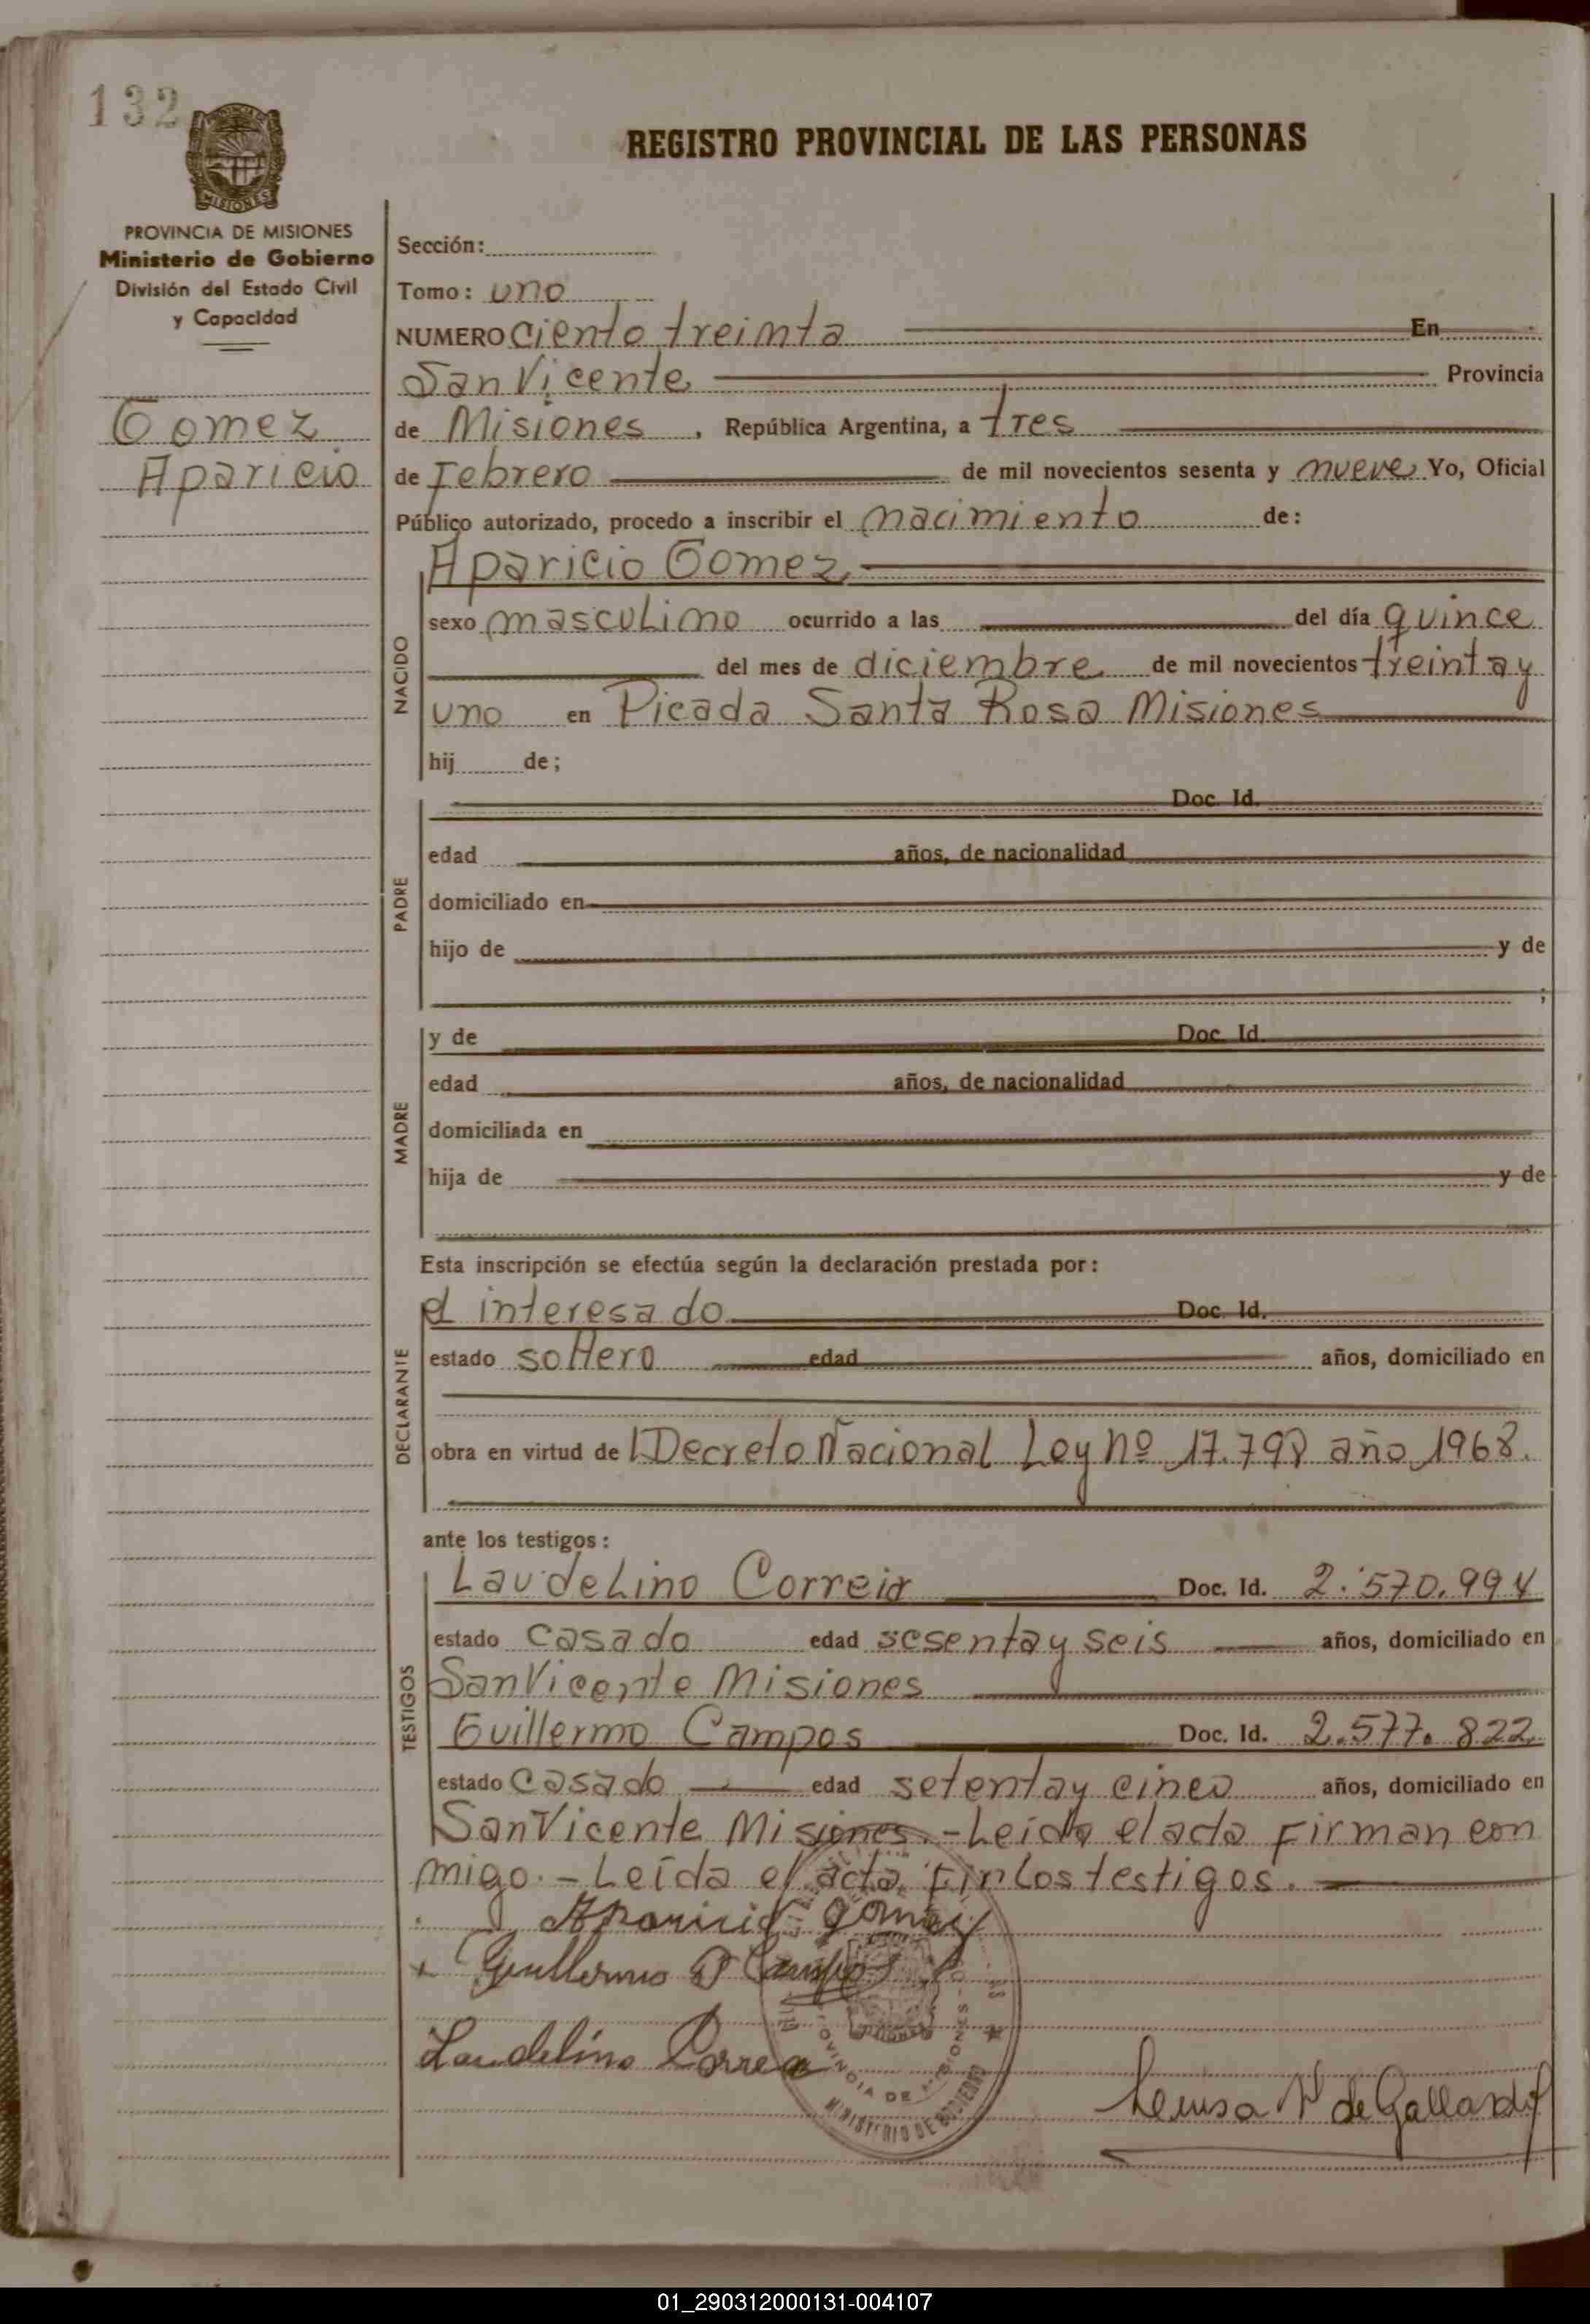 132
REGISTRO PROVINCIAL DE LAS PERSONAS
MISIONES
PROVINCIA DE MISIONES
Ministerio de Gobierno
División del Estado Civil
y Capacidad
Gomez
Aparicio
Sección:
Tomo: uno
NUMERO ciento treinta En
San Vicente Provincia
de Misiones, República Argentina, a tres
de Febrero de mil novecientos sesenta y nueve Yo, Oficial
Público autorizado, procedo a inscribir el nacimiento de:
Aparicio Gomez
NACIDO
sexo masculino ocurrido a las del día quince
del mes de diciembre de mil novecientos treinta y
uno en Picada Santa Rosa Misiones
hij de;
PADRE
Doc. Id.
edad años, de nacionalidad
domiciliado en
hijo de y de
;
MADRE
y de Doc. Id.
edad años, de nacionalidad
domiciliada en
hija de y de
Esta inscripción se efectúa según la declaración prestada por:
DECLARANTE
el interesado Doc. Id.
estado soltero edad años, domiciliado en
obra en virtud de Decreto Nacional Ley Nº 17.798 año 1968.
ante los testigos:
TESTIGOS
Laudelino Correia Doc. Id. 2.570.994
estado casado edad sesenta y seis años, domiciliado en
San Vicente Misiones
Guillermo Campos Doc. Id. 2.577.822
estado casado edad setenta y cinco años, domiciliado en
San Vicente Misiones.-Leída el acta Firman con
migo.-Leída el acta Fir los testigos.
Aparicio Gomez
Guillermo Campos
Laudelino Correa
PROVINCIA DE MISIONES
MINISTERIO DE GOBIERNO
de Gallardo
01_290312000131-004107